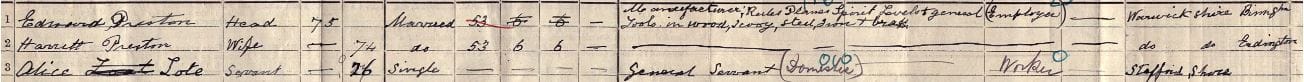 1 Edward Preston Head 75 Married 53 6 6 — Manufacturer, Rules Planes Spirit Levels & general Tools in wood, Ivory, steel, iron & brass Employer — Warwickshire Birmgham
2 Harriett Preston Wife — 74 do 53 6 6 — — do do Erdington
3 Alice Tote Servant — 26 Single — General Servant (Domestic) Worker Stafford Shire